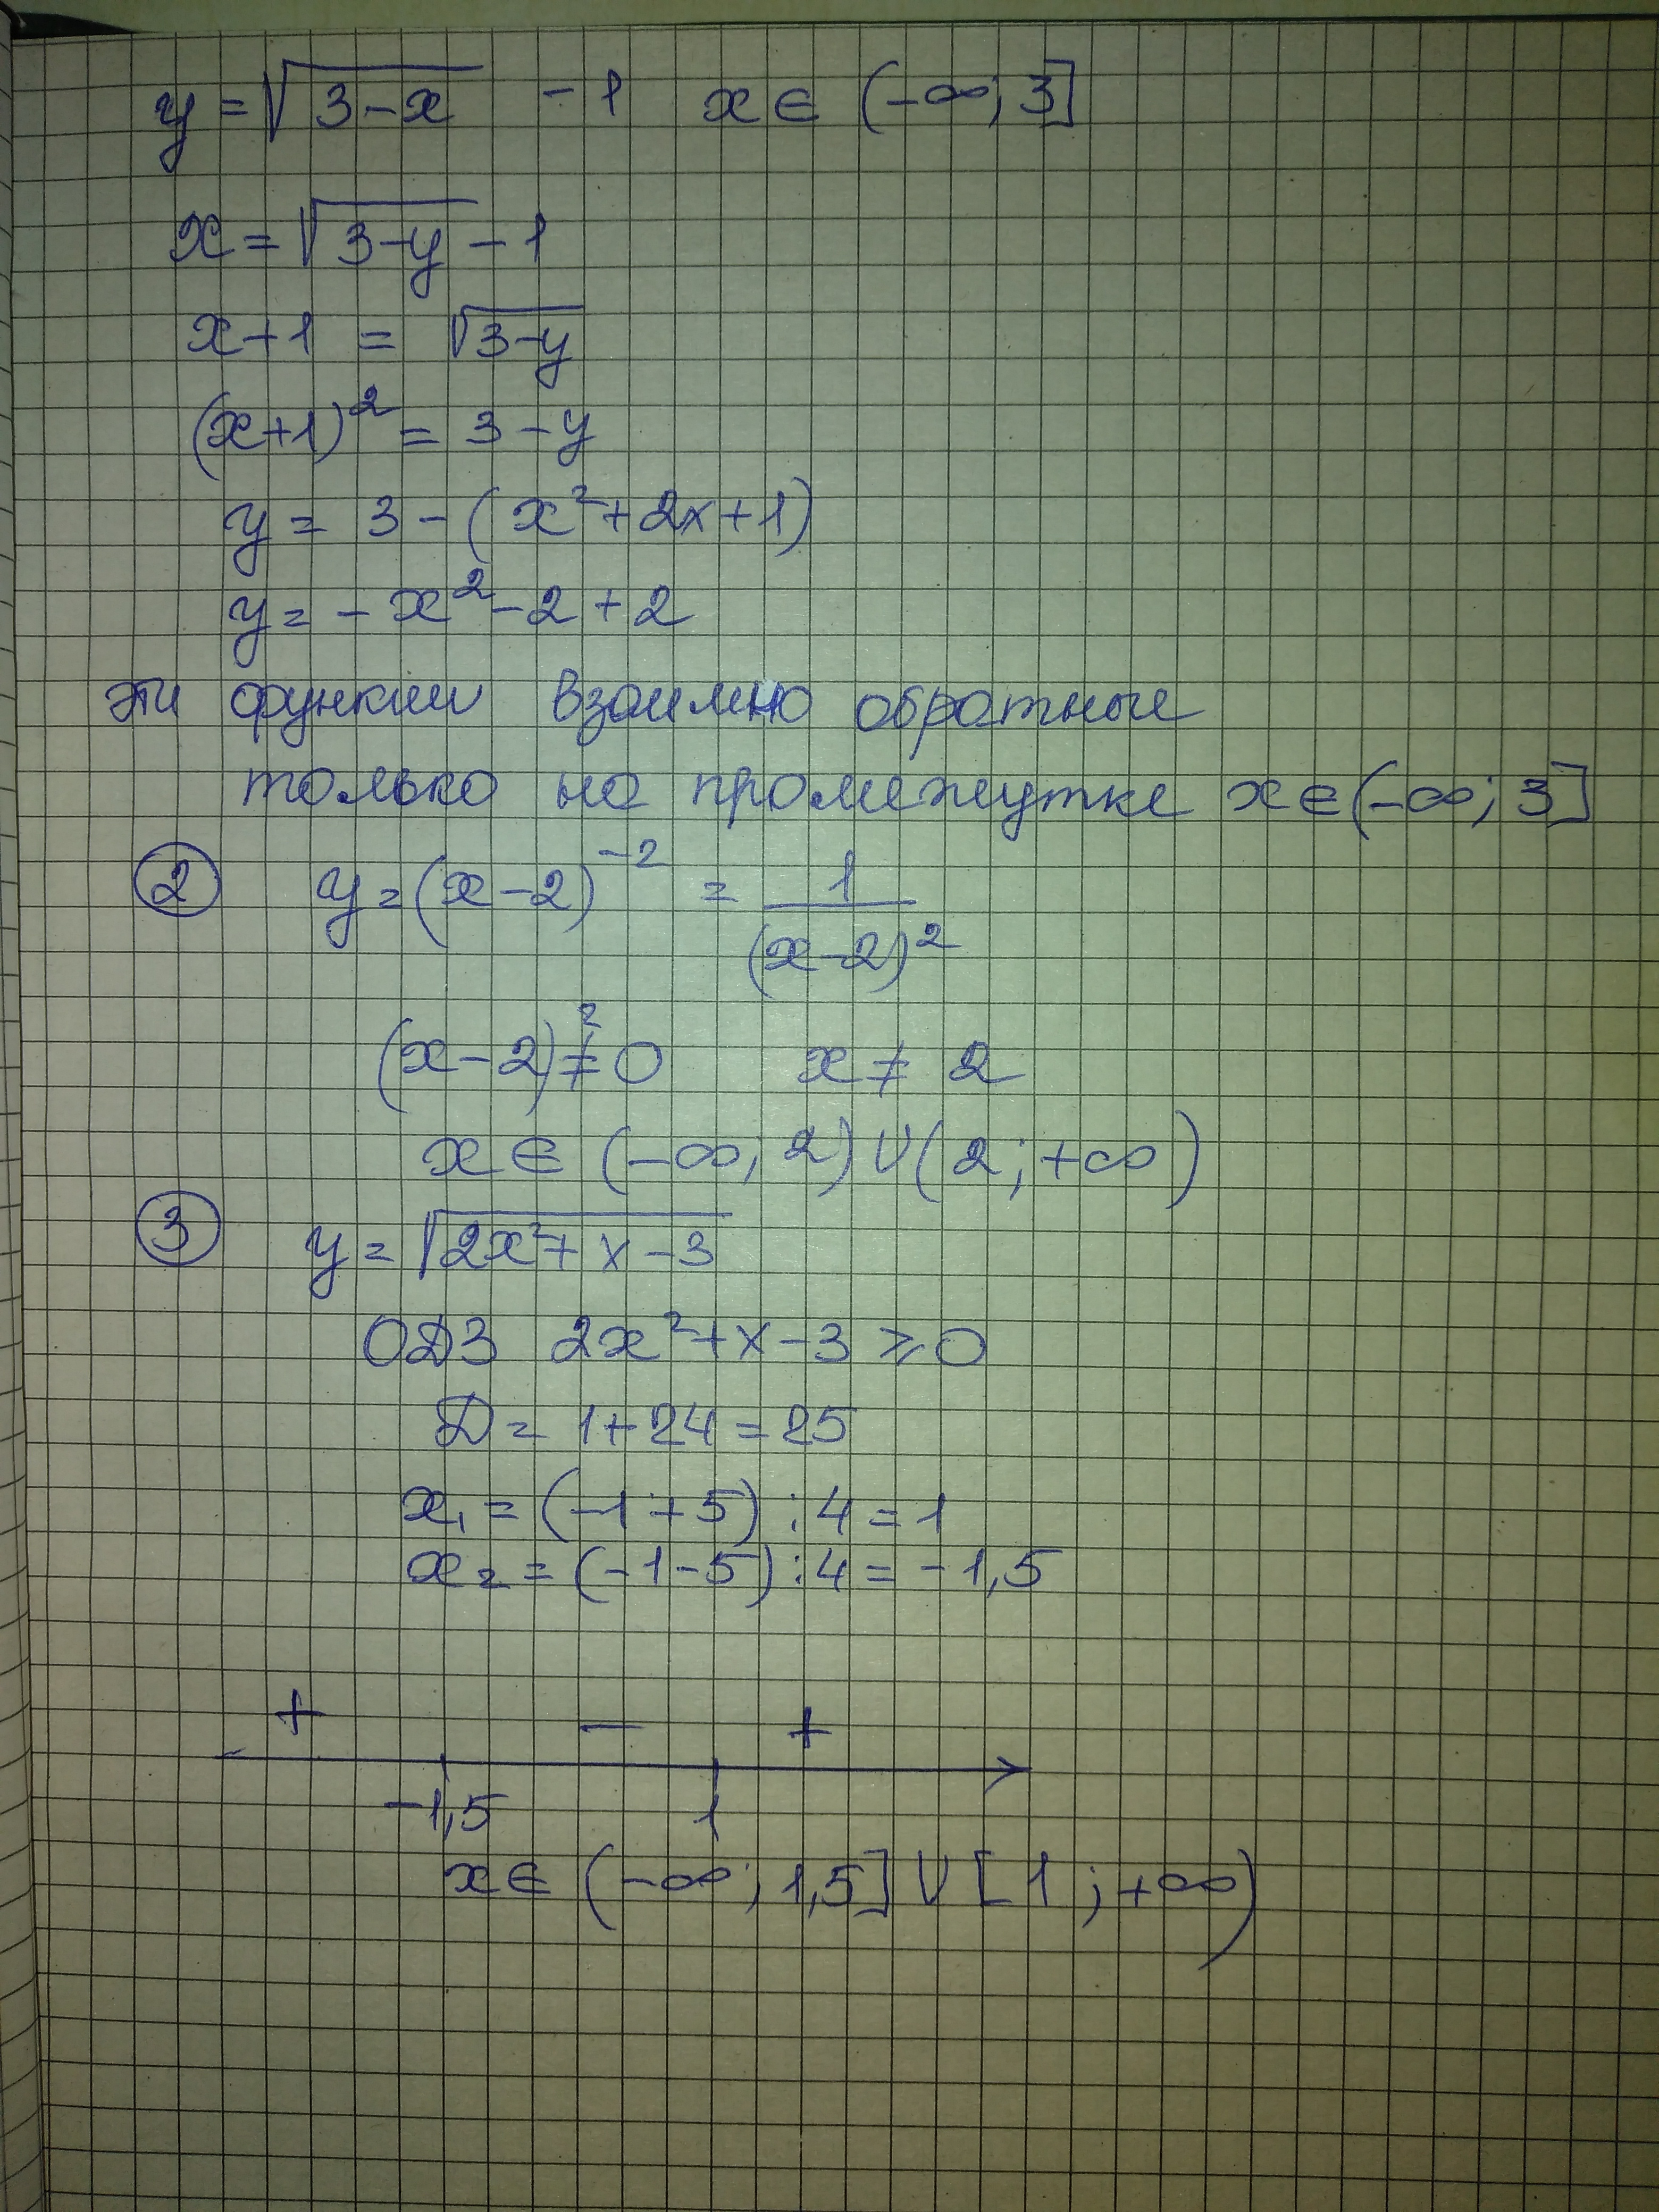 y = √3-x - 1 x ∈ (-∞; 3]
x = √3-y - 1
x+1 = √3-y
(x+1)² = 3-y
y = 3-(x²+2x+1)
y = -x²-2+2
эти функции взаимно обратные
только на промежутке x∈(-∞; 3]
② y=(x-2)⁻² = 1/(x-2)²
(x-2)²≠0 x≠2
x ∈ (-∞; 2)∪(2;+∞)
③ y = √2x²+x-3
ОДЗ 2x²+x-3 ⩾0
Д = 1+24=25
x₁ = (-1+5):4=1
x₂ = (-1-5):4=-1,5
+ − +
-1,5 1
x∈ (-∞; 1,5]∪[1;+∞)